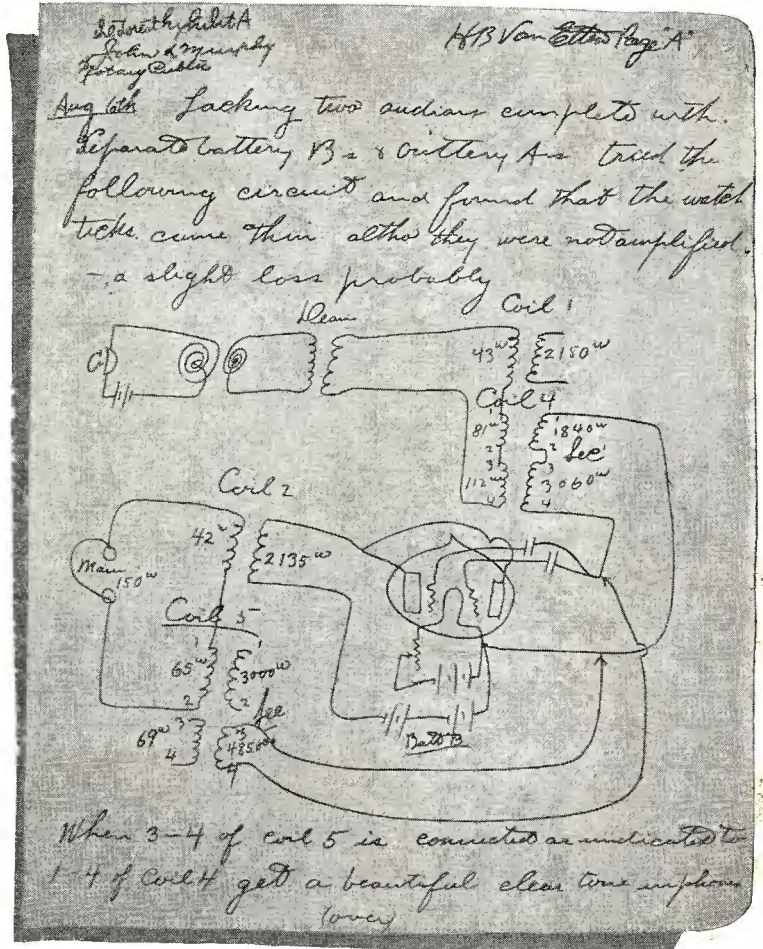 John L Murphy
Notary Public
H B Van Etten Page "A"
Aug 6th Lacking two audions complete with
separate battery Bs & battery As tried the
following circuit and found that the watch
ticks came thru altho they were not amplified.
- a slight loss probably
Coil 1
43ω
2150ω
Coil 4
81ω
1
2
3
112ω
4
1
1840ω
2
Sec
3
3060ω
4
Coil 2
42ω
2135ω
150ω
Coil 5
1
65ω
2
1
3000ω
2
Sec
69ω
3
4
3
4
Batt B
When 3-4 of coil 5 is connected as indicated to
1-4 of Coil 4 get a beautiful clear tone in phones
(over)